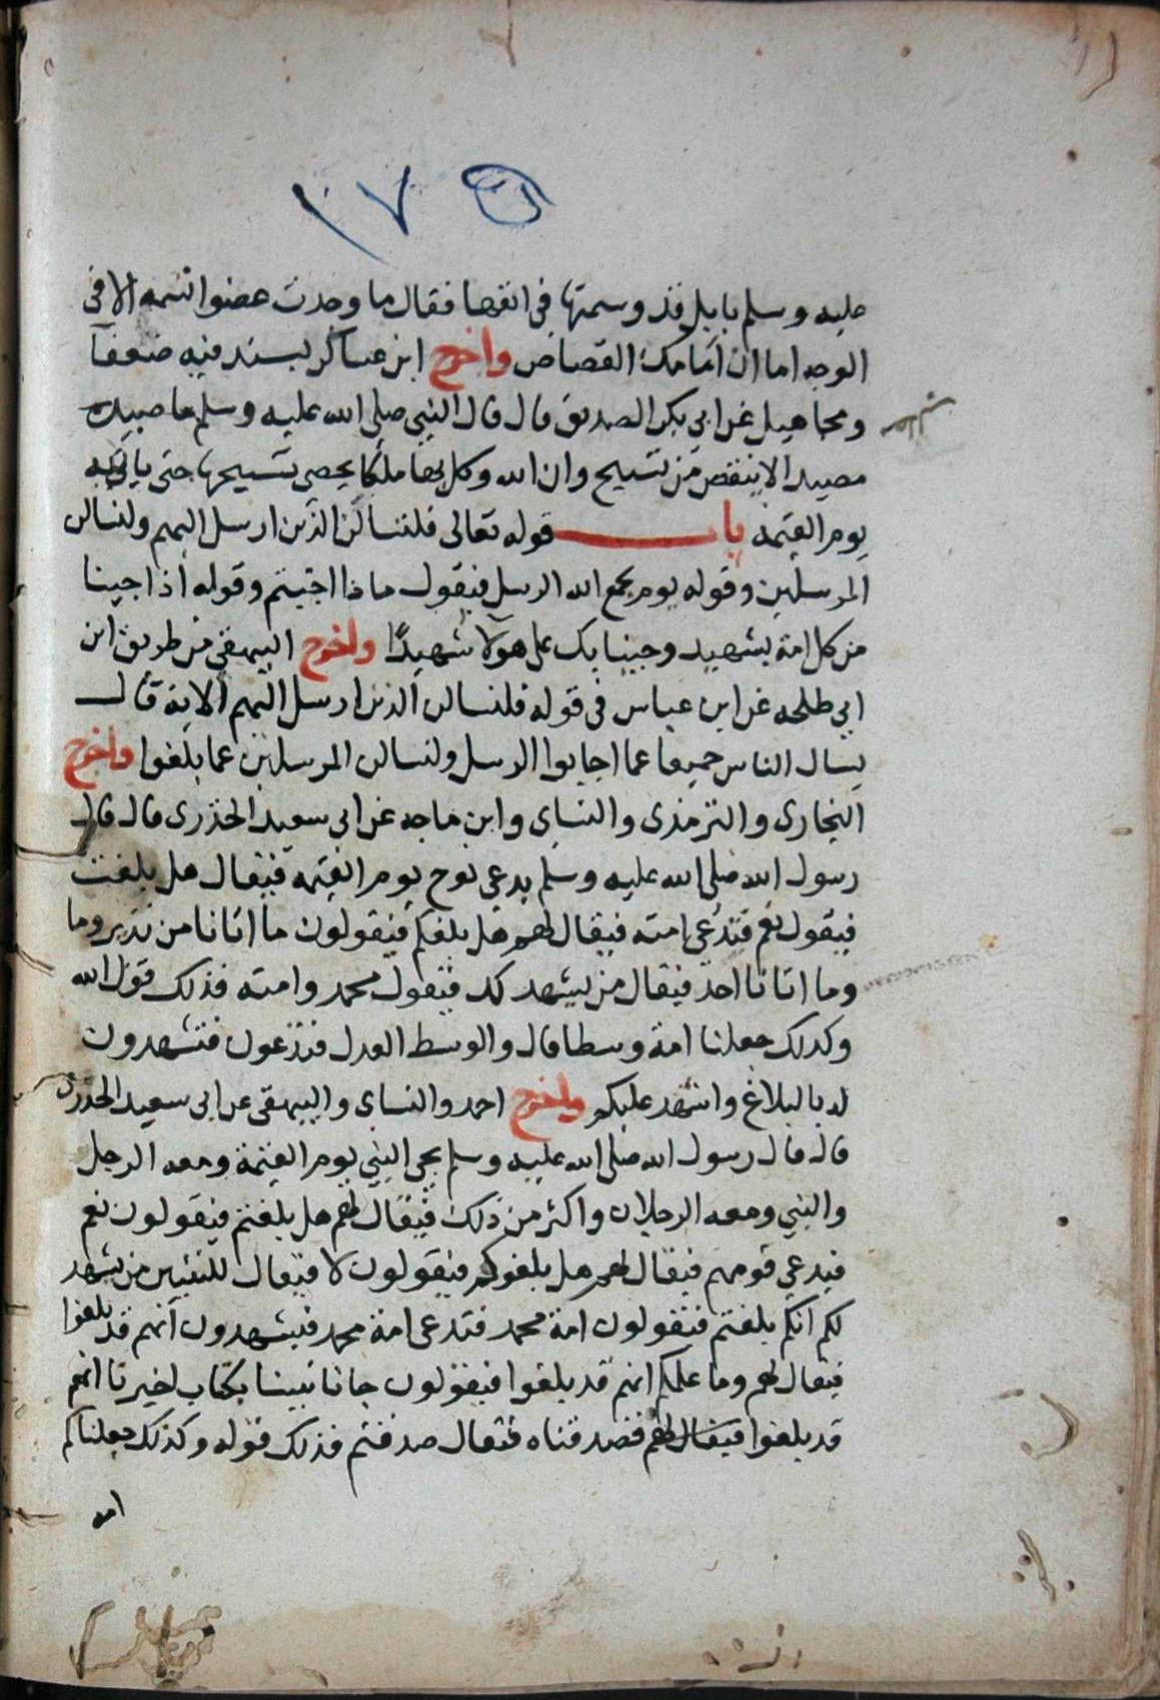 ١٧
عليه وسلم بابل قد وسمتها في انفها فقال ما وجدت عضوا تسمه الا في
الوجه اما ان امامك القصاص واخرج ابن عساكر بسند فيه ضعفا
ومجاهيل عن ابي بكر الصديق قال قال النبي صلى الله عليه وسلم ما صيد
مصيد الا بنقص من تسبيح وان الله وكل بها ملكا يحصى تسبيحها حتى ياتي به
يوم القيمة باب قوله تعالى فلنسالن الذين ارسل اليهم ولنسالن
المرسلين وقوله يوم يجمع الله الرسل فيقول ماذا اجبتم وقوله اذا جينا
من كل امة بشهيد وجينا بك على هولا شهيدا واخرج البيهقي من طريق ابن
ابي طلحه عن ابن عباس في قوله فلنسالن الذين ارسل اليهم الاية قال
يسال الناس جميعا عما اجابوا الرسل ولنسالن المرسلين عما بلغوا واخرج
البخارى والترمذى والنساى وابن ماجه عن ابى سعيد الخدرى قال قال
رسول الله صلى الله عليه وسلم يدعى نوح يوم القيمه فيقال هل بلغت
فيقول نعم فتدعى امته فيقال لهم هل بلغكم فيقولون ما اتانا من نذير وما
وما اتانا احد فيقال من يشهد لك فيقول محمد وامته فذلك قول الله
وكذلك جعلنا امة وسطا قال والوسط العدل فتدعون فتشهدون
له بالبلاغ واشهد عليكم واخرج احمد والنساى والبيهقى عن ابى سعيد الخدرى
قال قال رسول الله صلى الله عليه وسلم يجى النبي يوم القيمة ومعه الرجل
والنبي ومعه الرجلان واكثر من ذلك فيقال لهم هل بلغتم فيقولون نعم
فيدعى قومهم فيقال لهم هل بلغوكم فيقولون لا فيقال للنبيين من يشهد
لكم انكم بلغتم فيقولون امة محمد فتدعى امة محمد فيشهدون انهم قد بلغوا
فيقال لهم وما علمكم انهم قد بلغوا فيقولون جانا نبينا بكتاب اخبرنا انهم
قد بلغوا فيقال لهم فصدقناه فيقال صدقتم فذلك قوله وكذلك جعلناكم
امه